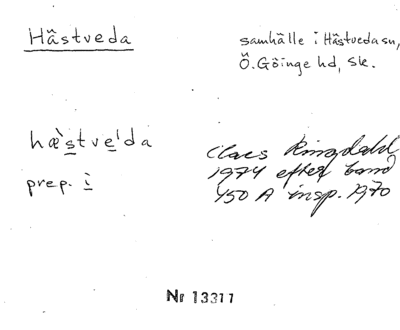 Hästveda
samhälle i Hästveda sn,
Ö. Göinge hd, Sk.
hæ`stve'da
prep. i
Claes Ringdahl
1974 efter band
450 A insp. 1970
Nr 13311